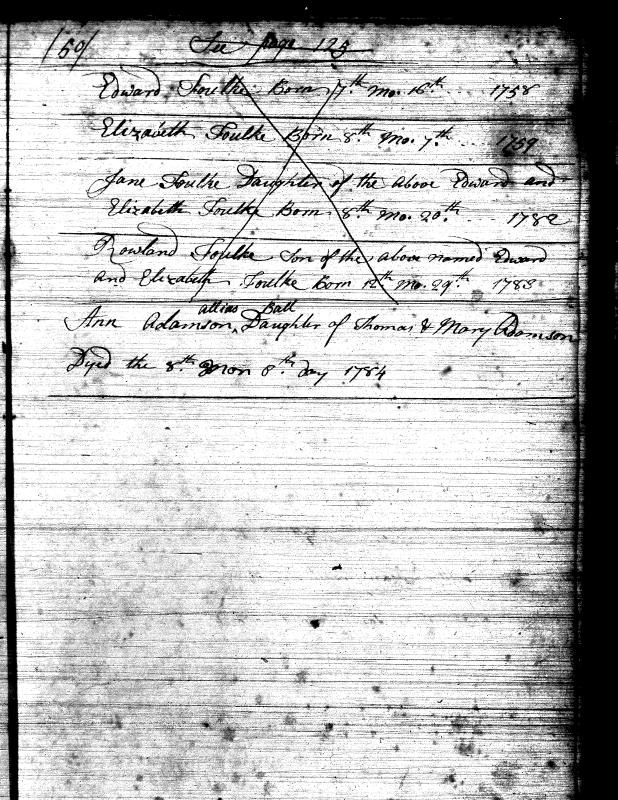 /60/ See page 125
Edward Foulke Born 7th Mo. 16th 1758
Elizabeth Foulke Born 8th Mo. 7th 1759
Jane Foulke Daughter of the above Edward and
Elizabeth Foulke Born 8th Mo. 20th 1782
Rowland Foulke Son of the above named Edward
and Elizabeth Foulke Born 12th Mo. 29th 1783
attias Ball
Ann Adamson, ^ Daughter of Thomas & Mary Adamson
Dyed the 8th Mon 8th Day 1784